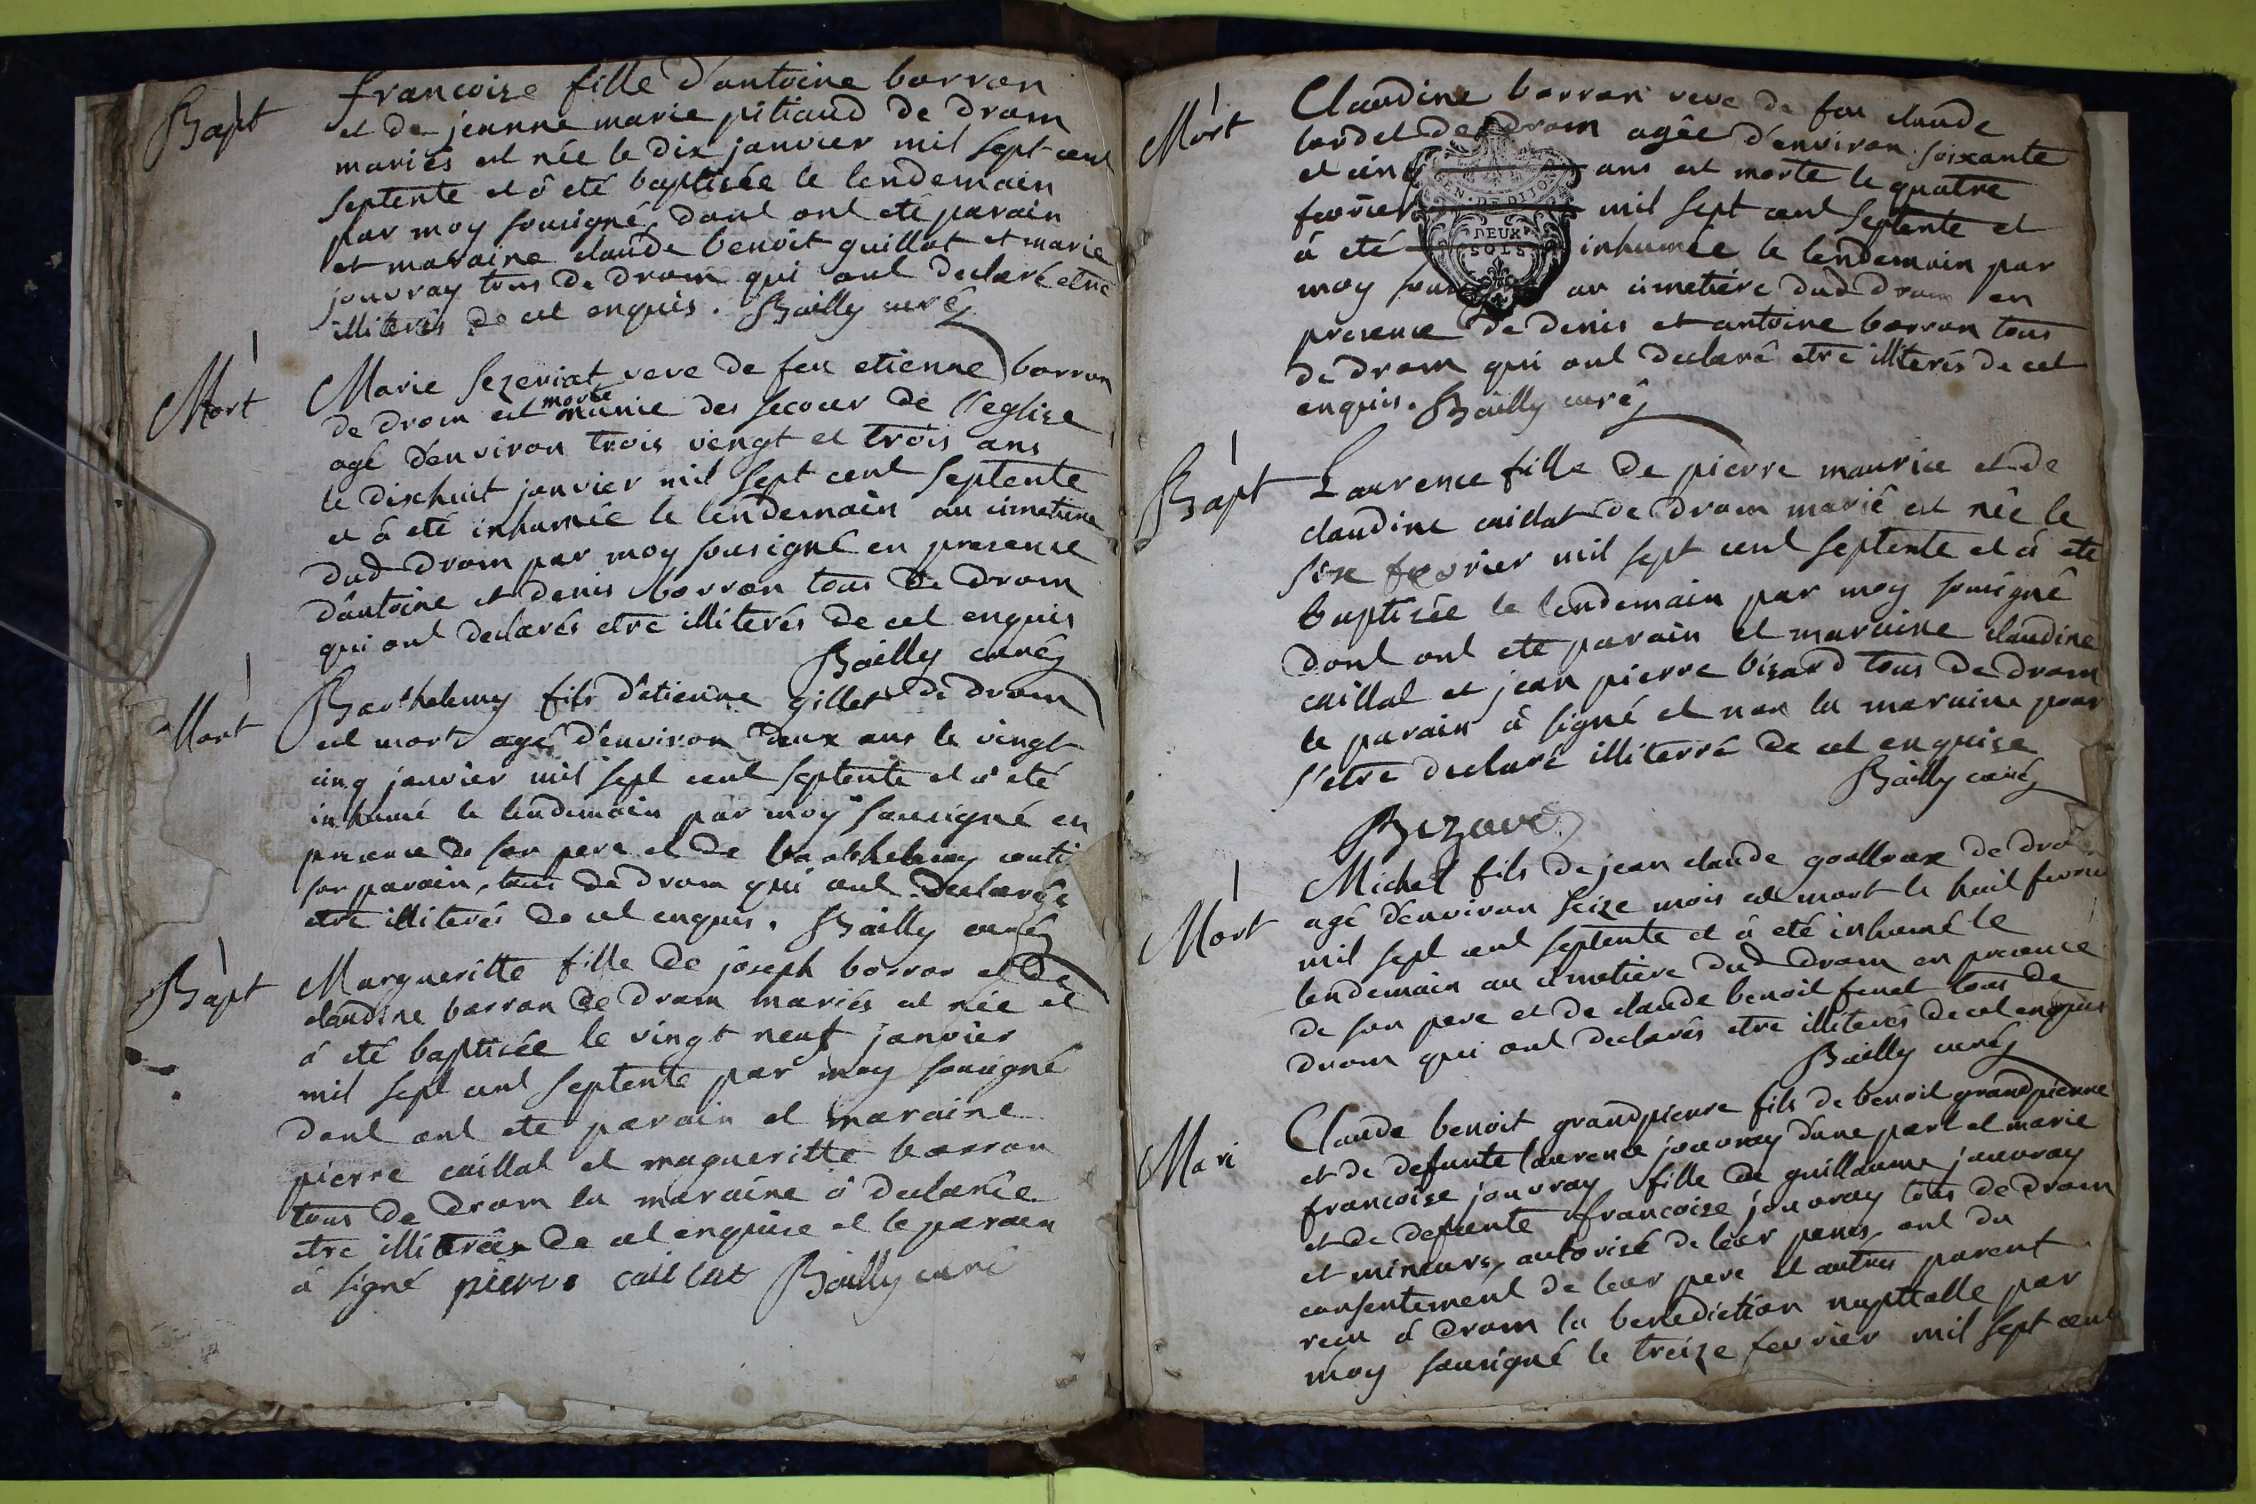 Bapt
francoise fille d'antoine borron
et de jeanne marie pitiaud de drom
mariés est née le dix janvier mil sept cent
septente et â eté baptisée le lendemain
par moy sousigné dont ont eté parain
et maraine claude benoit guillot et marie
jouvray tous de drom qui ont declaré etre
illiterés de cet enquis. Bailly curé
Mort
Marie sezeriat veve de feu etienne borron
de drom est morte munie des secour de l'eglise
agé d'environ trois vingt et trois ans
le dixhuit janvier mil sept cent septente
et â eté inhumée le lendemain au cimetiere
dud drom par moy sousigné en presence
d'antoine et denis borron tous de drom
qui ont declarés etre illiterés de cet enquis
Bailly curé
Mort
Barthelemy fils d'etienne gillet de drom
est mort agé d'environ deux ans le vingt
cinq janvier mil sept cent septente et â eté
inhumé le lendemain par moy sousigné en
presence de son pere et de barthelemy
son parain, tous de drom qui ont declarés
etre illiterés de cet enquis. Bailly curé
Bapt
Margueritte fille de joseph borron et de
claudine borron de drom mariés est née et
â eté baptisée le vingt neuf janvier
mil sept cent septente par moy sousigné
dont ont ete parain et maraine
pierre caillat et magueritte borron
tous de drom la maraine â declarée
etre illiterée de cet enquise et le parain
â signé pierre caillat Bailly curé
Mort
Claudine borron veve de feu claude
de drom agée d'environ soixante
et cinq ans est morte le quatre
fevrier mil sept cent septente et
â eté inhumée le lendemain par
moy sous au cimetiére dud drom en
presence de denis et antoine borron tous
de drom qui ont declaré etre illiterés de cet
enquis. Bailly curé
GEN. DE DIJON
DEUX
SOLS
Bapt
Laurence fille de pierre maurice et de
claudine caillat de drom marié est née le
six fevrier mil sept cent septente et â ete
baptisée le lendemain par moy sousigné
dont ont ete parain et maraine claudine
caillat et jean pierre bizard tous de drom
le parain â signé et non la maraine pour
s'etre declaré illiterré de cet enquise
Bailly curé
Bizard
Mort
Michel fils de jean claude de drom
agé d'environ seize mois est mort le huit fevrier
mil sept cent septente et â eté inhumé le
lendemain au cimetiére dud drom en presence
de son pere et de claude benoit tous de
drom qui ont declarés etre illiterés de cet enquis
Bailly curé
Mari
Claude benoit grandpierre fils de benoit grandpierre
et de defunte laurence jouvray d'une part et marie
francoise jouvray fille de guillaume jouvray
et de defunte francoise jouvray tous de drom
et mineurs, autorisé de leur peres, ont du
consentement de leur pere et autres parent
recu â drom la benediction nupttalle par
moy sousigné le treize fevrier mil sept cent